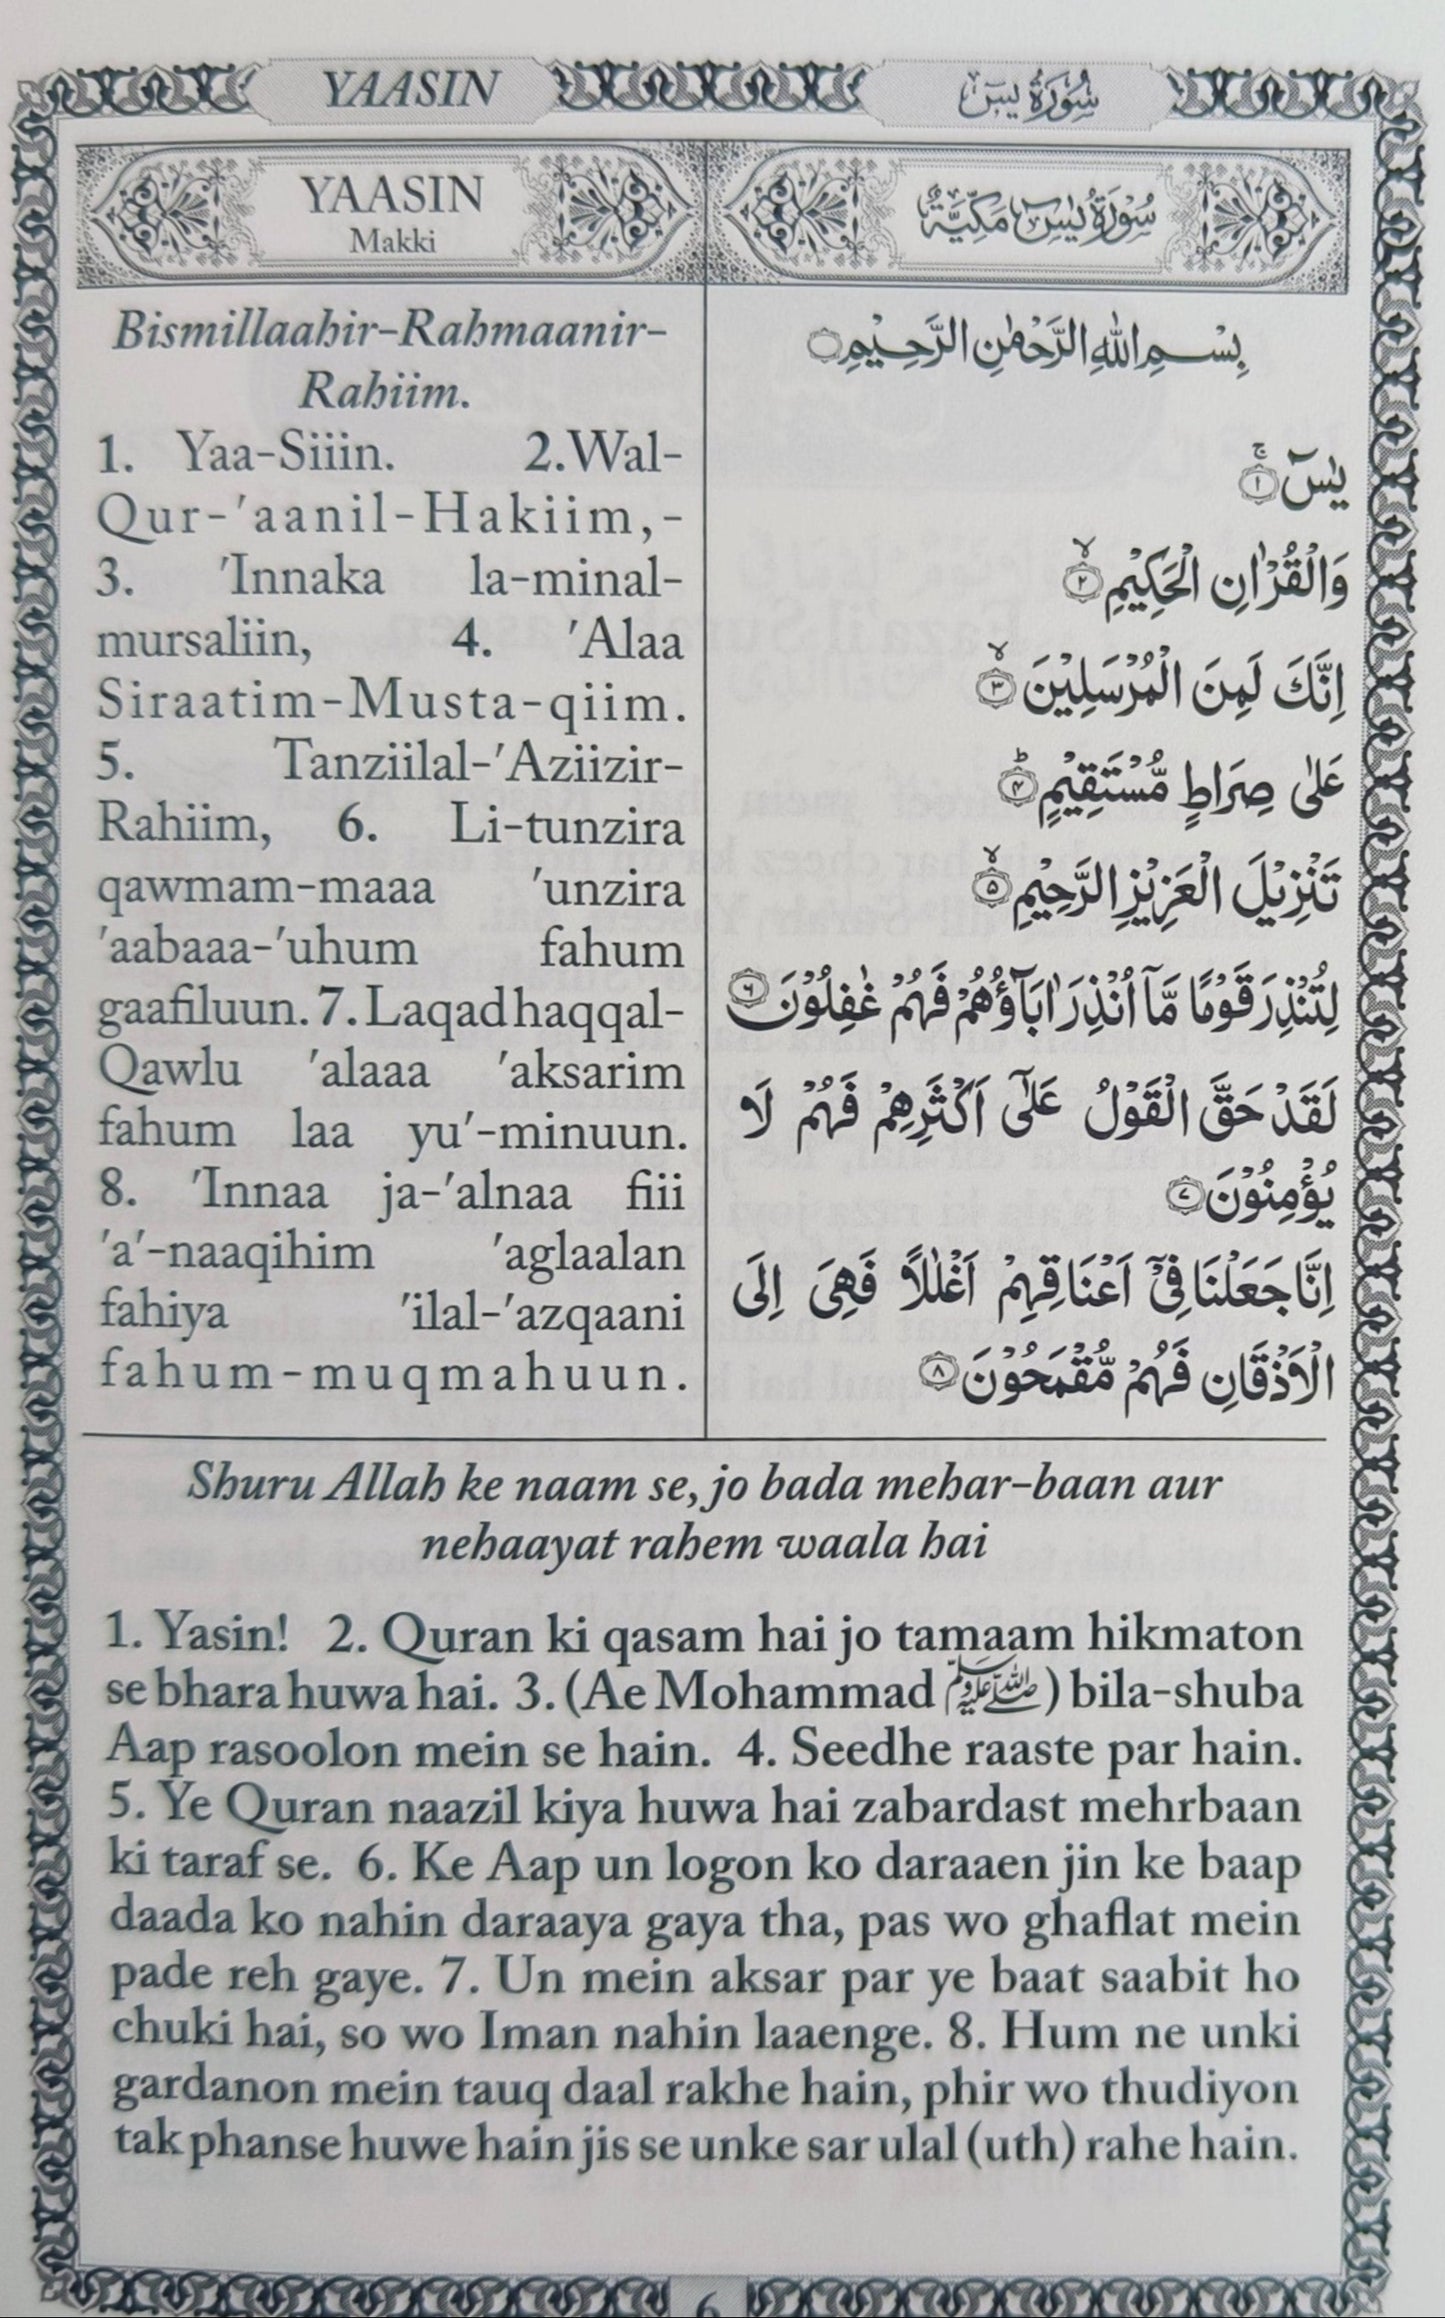 YAASIN
سُورَةُ يٰسٓ
YAASIN
Makki
سُوْرَةُ يٰسٓ مَكِّيَّةٌ
Bismillaahir-Rahmaanir-
Rahiim.
1. Yaa-Siiin. 2.Wal-
Qur-'aanil-Hakiim,-
3. 'Innaka la-minal-
mursaliin, 4. 'Alaa
Siraatim-Musta-qiim.
5. Tanziilal-'Aziizir-
Rahiim, 6. Li-tunzira
qawmam-maaa 'unzira
'aabaaa-'uhum fahum
gaafiluun. 7. Laqad haqqal-
Qawlu 'alaaa 'aksarim
fahum laa yu'-minuun.
8. 'Innaa ja-'alnaa fiii
'a'-naaqihim 'aglaalan
fahiya 'ilal-'azqaani
fahum-muqmahuun.
بِسْمِ اللّٰهِ الرَّحْمٰنِ الرَّحِيْمِ
يٰسٓ ۚ ۝١
وَالْقُرْاٰنِ الْحَكِيْمِ ۙ ۝٢
اِنَّكَ لَمِنَ الْمُرْسَلِيْنَ ۙ ۝٣
عَلٰى صِرَاطٍ مُّسْتَقِيْمٍ ؕ ۝٤
تَنْزِيْلَ الْعَزِيْزِ الرَّحِيْمِ ۙ ۝٥
لِتُنْذِرَ قَوْمًا مَّاۤ اُنْذِرَ اٰبَآؤُهُمْ فَهُمْ غٰفِلُوْنَ ۝٦
لَقَدْ حَقَّ الْقَوْلُ عَلٰۤى اَكْثَرِهِمْ فَهُمْ لَا
يُؤْمِنُوْنَ ۝٧
اِنَّا جَعَلْنَا فِيْۤ اَعْنَاقِهِمْ اَغْلٰلًا فَهِيَ اِلَى
الْاَذْقَانِ فَهُمْ مُّقْمَحُوْنَ ۝٨
Shuru Allah ke naam se, jo bada mehar-baan aur
nehaayat rahem waala hai
1. Yasin! 2. Quran ki qasam hai jo tamaam hikmaton
se bhara huwa hai. 3. (Ae Mohammad ﷺ) bila-shuba
Aap rasoolon mein se hain. 4. Seedhe raaste par hain.
5. Ye Quran naazil kiya huwa hai zabardast mehrbaan
ki taraf se. 6. Ke Aap un logon ko daraaen jin ke baap
daada ko nahin daraaya gaya tha, pas wo ghaflat mein
pade reh gaye. 7. Un mein aksar par ye baat saabit ho
chuki hai, so wo Iman nahin laaenge. 8. Hum ne unki
gardanon mein tauq daal rakhe hain, phir wo thudiyon
tak phanse huwe hain jis se unke sar ulal (uth) rahe hain.
6